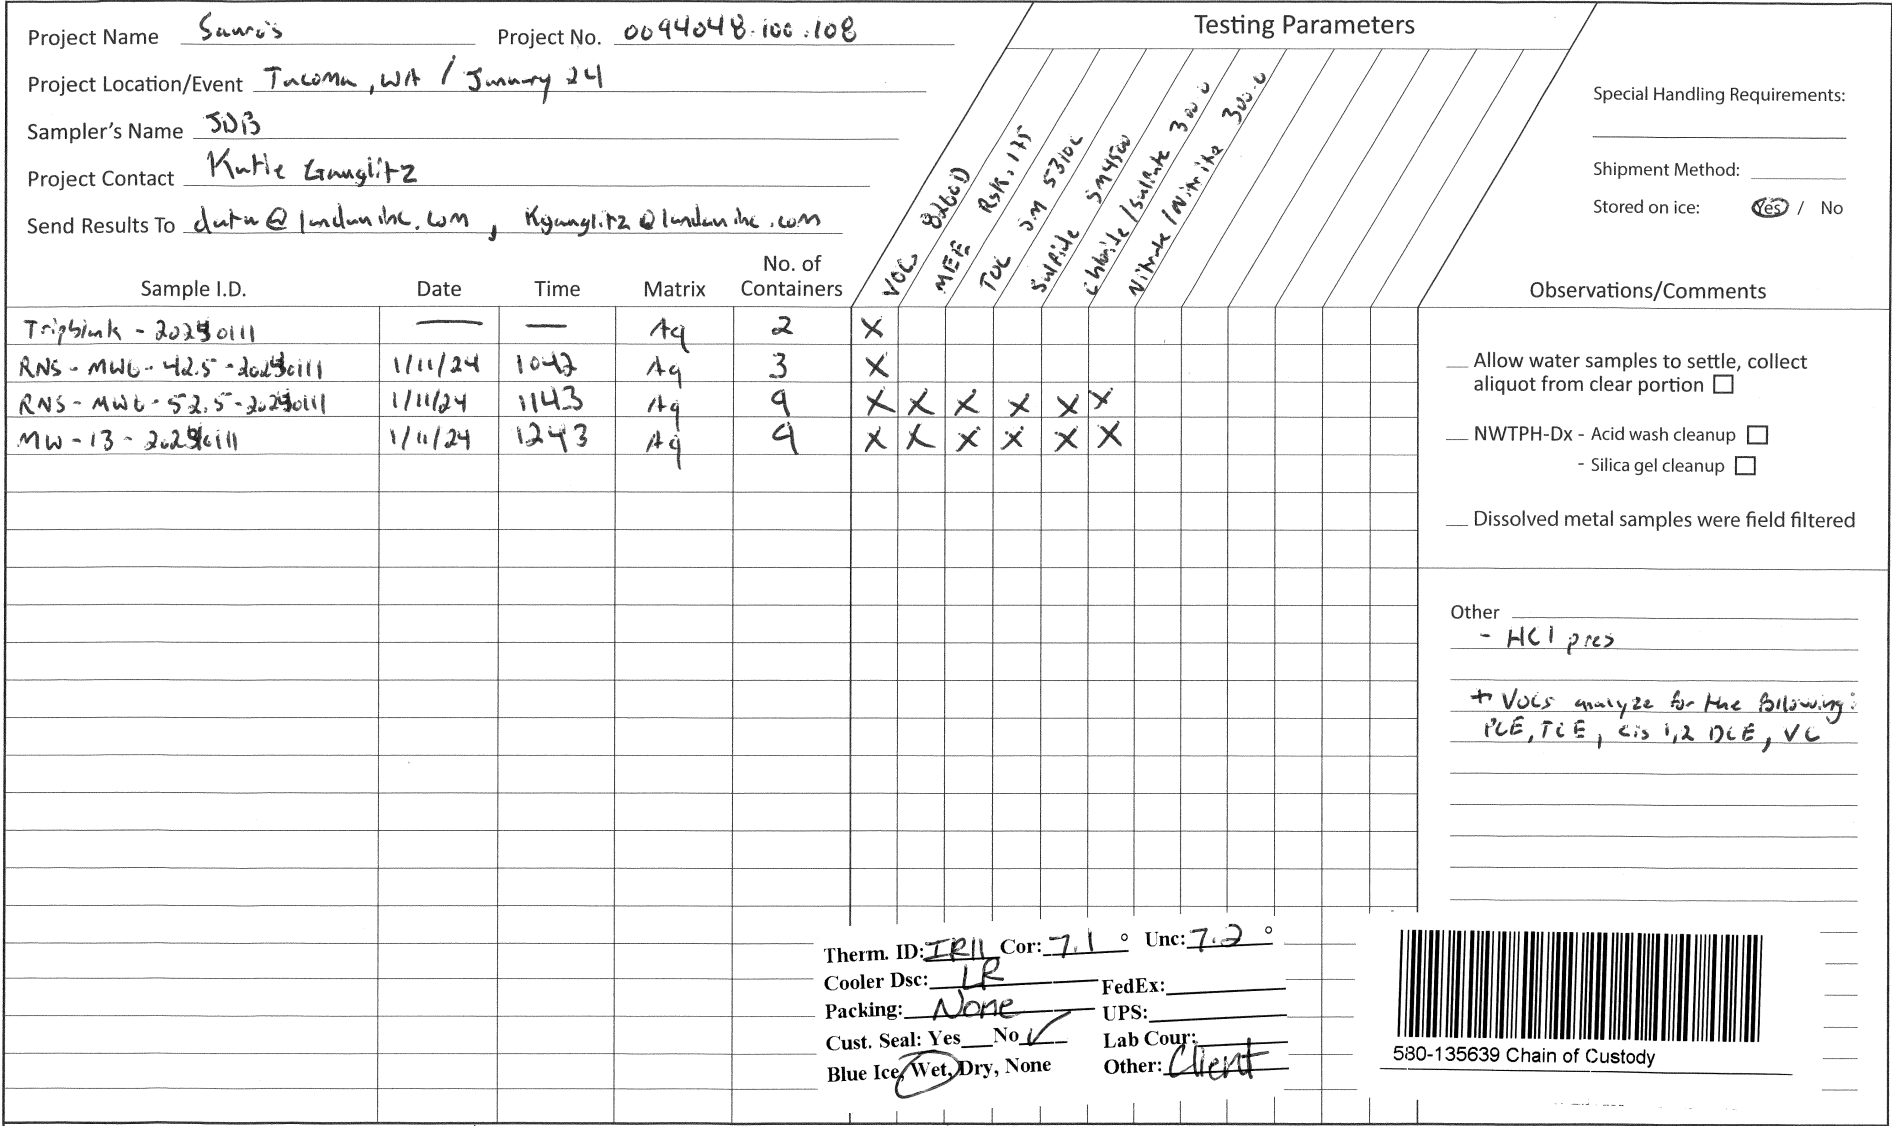 Project Name Project No. 0094048.100.108
Testing Parameters
Project Location/Event Tacoma, WA / January 24
Sampler's Name JDB
Project Contact Katie Gauglitz
Send Results To data@landauinc.com, Kgauglitz@landauinc.com
Special Handling Requirements:
Shipment Method:
Stored on ice: Yes / No
VOCs 8260D
MEE RSK.175
TOC SM 5310C
Sulfide SM4500
Chloride/Sulfate 300.0
Nitrate/Nitrite 300.0
Sample I.D. Date Time Matrix No. of Containers Observations/Comments
Tripblank - 20240111 — — Aq 2 X
RNS-MW6-42.5-20240111 1/11/24 1042 Aq 3 X
RNS-MW6-52.5-20240111 1/11/24 1143 Aq 9 X X X X X X
MW-13-20240111 1/11/24 1243 Aq 9 X X X X X X
Allow water samples to settle, collect
aliquot from clear portion
NWTPH-Dx - Acid wash cleanup
- Silica gel cleanup
Dissolved metal samples were field filtered
Other
- HCl pres
+ VOCs analyze for the following:
PCE, TCE, cis 1,2 DCE, VC
Therm. ID: IR11 Cor: 7.1 ° Unc: 7.2 °
Cooler Dsc: LR FedEx:
Packing: None UPS:
Cust. Seal: Yes No ✓ Lab Cour:
Blue Ice, Wet, Dry, None Other: Client
580-135639 Chain of Custody